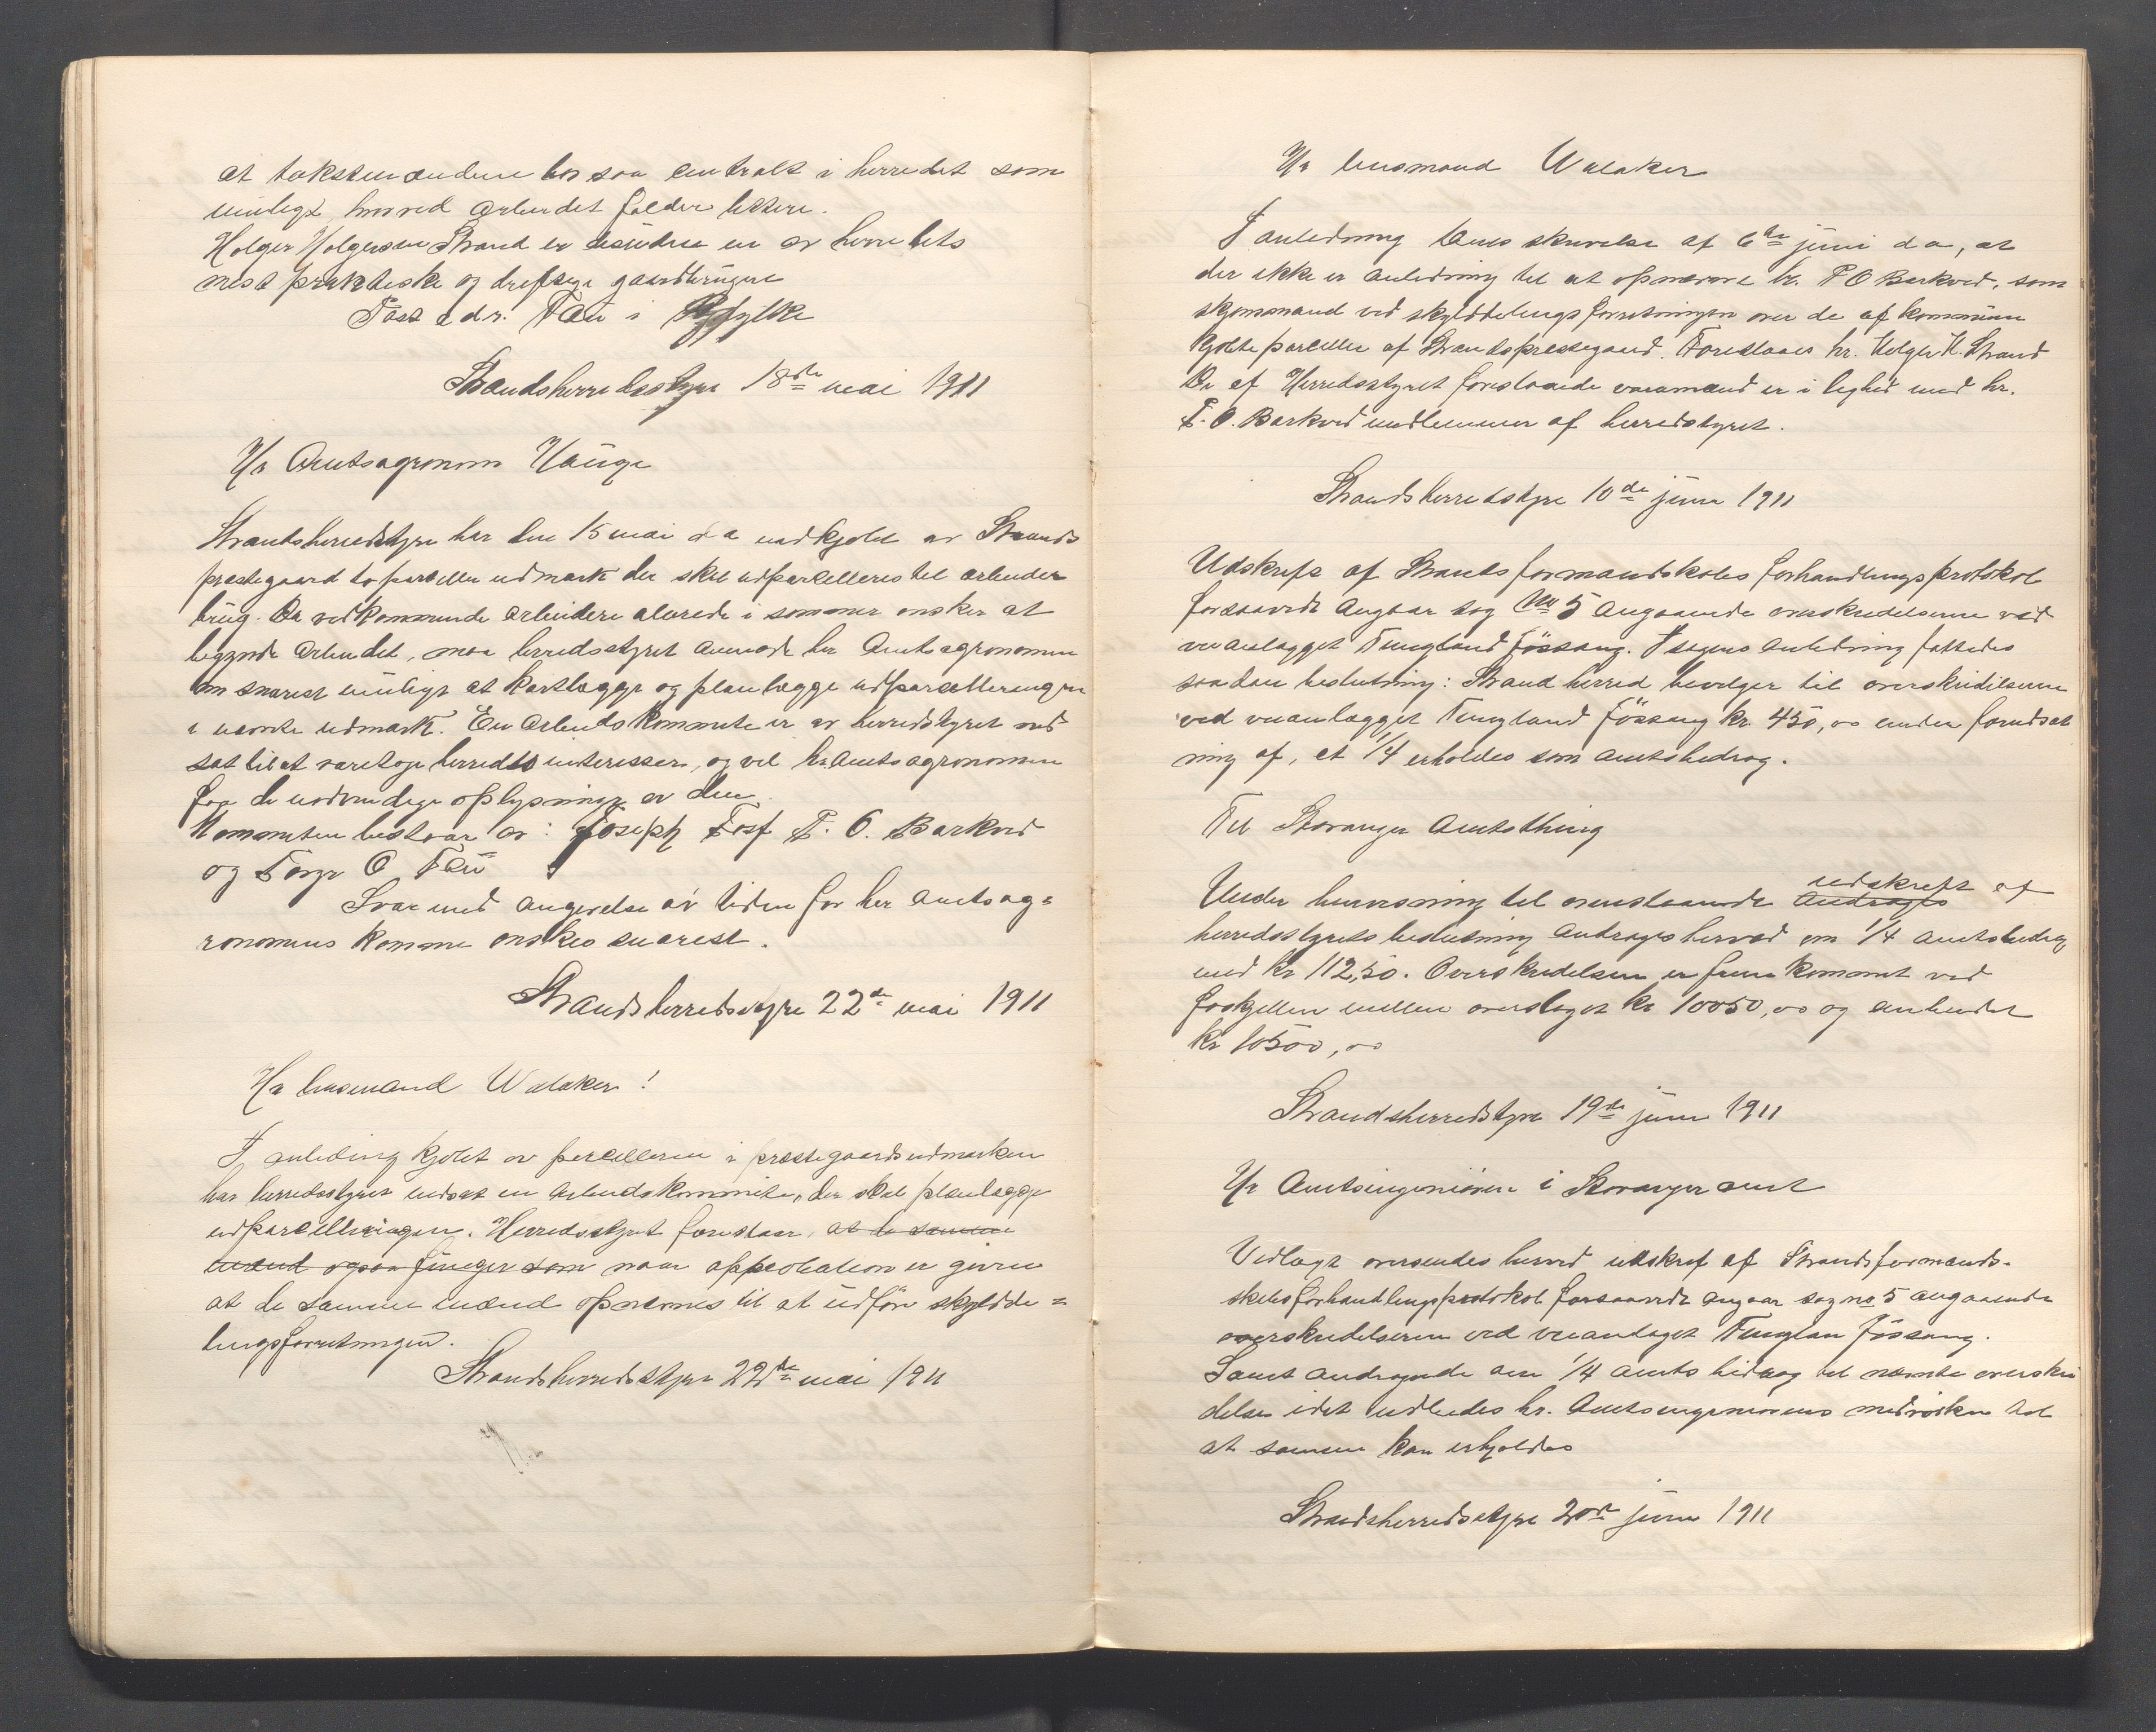 at takstmændene bor saa centralt i herredet som
muligt, hvorved arbeidet falder lettere.
Holger Holgersen Strand er desuden en av herredets
mest praktiske og dreftige gaardbrugere
Post adr. Tau i Ryfylke
Strandsherredsstyre 18de mai 1911
Hr Amtsagronom Hauge
Strandsherredsstyre har den 15 mai d a indkjøbt av Strands
prestegaard to parceller udmark der skal udparcelleres til arbeider
brug. Da vedkommende arbeidere alerede i sommer ønsker at
begynde arbeidet, maa herredsstyret anmode hr Amtsagronomen
om snarest muligt at kartlægge og planlægge udparcelleringen
i nævnte udmark. En arbeidskommite er av herredstyret ned
sat til at varetage herredets interesser, og vil hr Amtsagronomen
faa de nødvendige oplysninger av den.
Kommiteen bestaar av: Joseph Fosf T. O. Barkved
og Torger O Tau
Svar med angivelse av tiden for her amtsag=
ronomens komme ønskes snarest.
Strandsherredsstyre 22de mai 1911
Hr lensmand Walaker!
I anleding kjøbet av parcellerne i prestegaardsudmarken
har herredsstyret nedsat en arbeidskommite, der skal planlægge
udparcelleringen. Herredsstyret foreslaar, at de samme
mænd ogsaa fungerer som naar approbation er given
at de samme mænd opnævnes til at udføre skylddе=
lingsforretningen.
Strandsherredsstyre 22de mai 1911
Hr lensmand Walaker
I anledning Deres skrivelse af 6te juni d a, at
der ikke er anledning til at opnævne hr. T O Barkved, som
skjønsmand ved skylddelingsforretningen over de af kommunen
kjøbte parceller af Strandsprestegaard. Foreslaaes hr. Holger H. Strand
De af Herredsstyret foreslaaede varamænd er i lighed med hr.
T. O. Barkved medlemmer af herredstyret.
Strandsherredstyre 10de juni 1911
Udskrift af Strandsformandskabs forhandlingsprotokol
forsaavidt angaar sag No 5 angaaende overskridelserne ved
veianlægget Tungland Fössang. I sagens anledning fattedes
saadan beslutning: Strand herred bevilger til overskridelserne
ved veianlægget Tungland Fössang kr. 450,00 under forudsæt
ning af, at 1/4 erholdes som amtsbidrag.
Til Stavanger Amtsthing
Under henvisning til ovenstaaende andrages udskrift af
herredsstyrets beslutning andrages herved om 1/4 amtsbidrag
med kr 112,50. Overskridelsen er fremkommet ved
forskjellen mellem overslaget kr 10050,00 og anbudet
kr 10500,00
Strandsherredstyre 19de juni 1911
Hr Amtsingeniøren i Stavanger amt
Vedlagt oversendes herved udskrift af Strandsformands-
skabsforhandlingsprotokol forsaavidt angaar sag no 5 angaaende
overskridelserne ved veianlæget Tunglan Fössang.
Samt andragende om 1/4 amts bidrag til nævnte overskri
delse idet udbedes hr. Amtsingeniørens medvirken til
at samme kan erholdes
Strandsherredsstyre 20de juni 1911